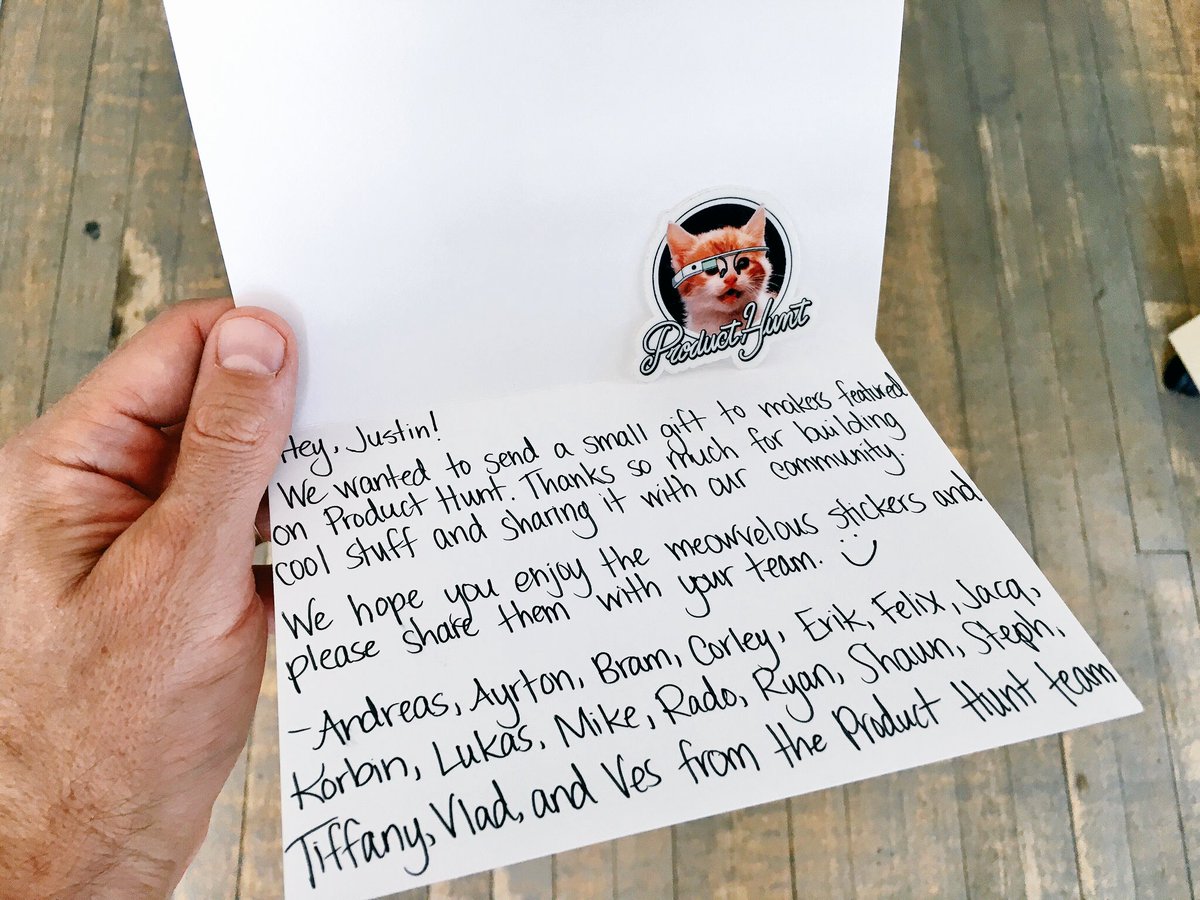 Product Hunt
Hey, Justin!
We wanted to send a small gift to makers featured
on Product Hunt. Thanks so much for building
cool stuff and sharing it with our community.
We hope you enjoy the meowvelous stickers and
please share them with your team. :)
-Andreas, Ayrton, Bram, Corley, Erik, Felix, Jacq,
Korbin, Lukas, Mike, Rado, Ryan, Shaun, Steph,
Tiffany, Vlad, and Ves from the Product Hunt team